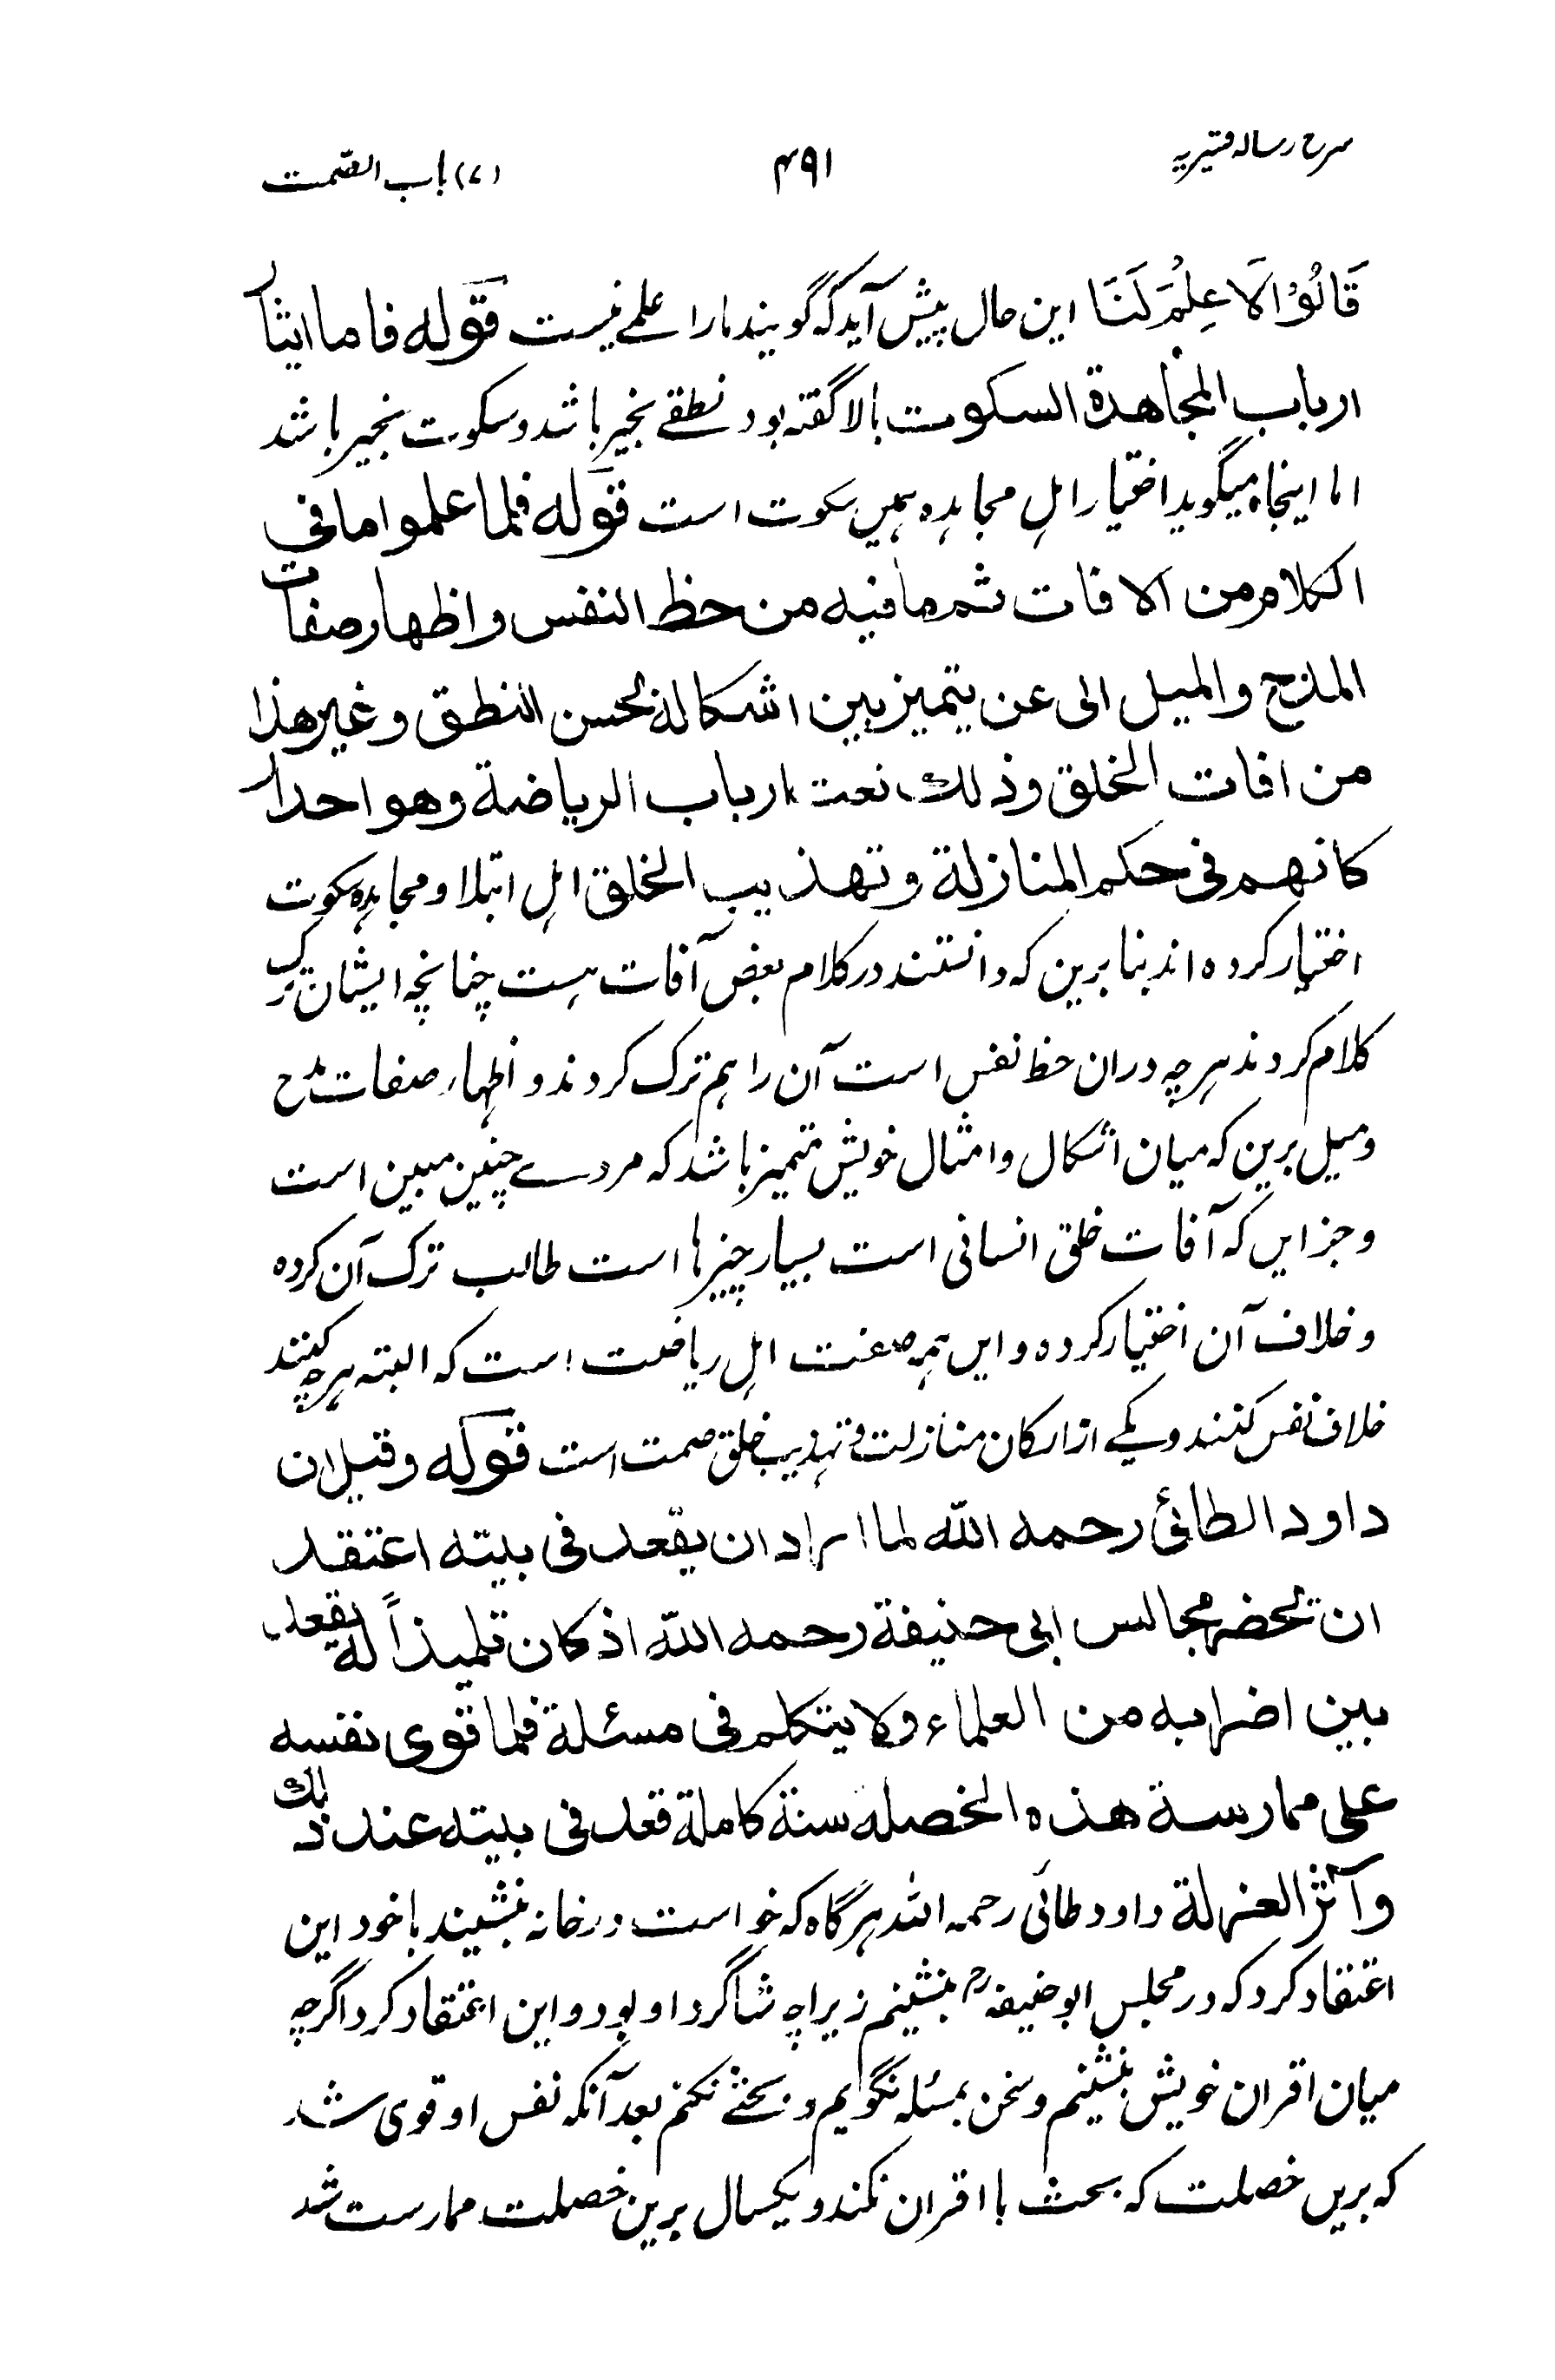 شرح رساله قشیریه ۴۹۱ (۷) باب الصّمت
قَالُوْا لَا عِلْمَ لَنَا این حال پیش آید که گویند ما را علمے نیست قوله فاما ایثار
ارباب المجاهدة السکوت بالا گفته بود نطقے بخیر باشد و سکوت بخیر باشد
اما اینجا میگوید اختیار اهل مجاهده همیں سکوت است قوله فلما علموا ما فی
الکلام من الافات ثم ما فیه من حظ النفس و اظهار صفات
المدح والمیل الی عن یتمیز بین اشکاله بحسن النطق و غیر هذا
من افات الخلق وذلک نعت ارباب الریاضة وهو احد ار
کانهم فی حکم المنازلة و تهذیب الخلق اهل ابتلا و مجاهده سکوت
اختیار کرده اند بنا برین که دانستند در کلام بعض آفات هست چنانچه ایشان ترک
کلام کردند هر چه دران حظ نفس است آن را هم ترک کردند و اظهار صفات مدح
و میل برین که میان اشکال و امثال خویش متمیز باشد که مردے چنین مبین است
و جز ایں که آفات خلق انسانی است بسیار چیزها است طالب ترک آن کرده
و خلاف آن اختیار کرده و ایں همه صفت اهل ریاضت است که البته هرچه کنند
خلاف نفس کنند و یکے از ارکان منازلت و تهذیب خلق صمت است قوله و قیل ان
داود الطائی رحمه الله لما اراد ان یقعد فی بیته اعتقد
ان یحضر مجالس ابی حنیفة رحمه الله اذ کان تلمیذاً له یقعد
بین اضرابه من العلماء ولا یتکلم فی مسئلة فلما قوی نفسه
علی ممارسة هذه الخصلة سنة کاملة قعد فی بیته عند ذلک
و آثر العزلة داود طائی رحمه الله هرگاه که خواست در خانه بنشیند با خود این
اعتقاد کرد که در مجلس ابو حنیفه رح بنشینم زیرا چه شاگرد او بود و این اعتقاد کرد اگرچه
میان اقران خویش بنشینم و سخن بمسئله نگویم و بحثے نکنم بعد آنکه نفس او قوی شد
که بریں خصلت که بحث با اقران نکند و یکسال برین خصلت ممارست شد